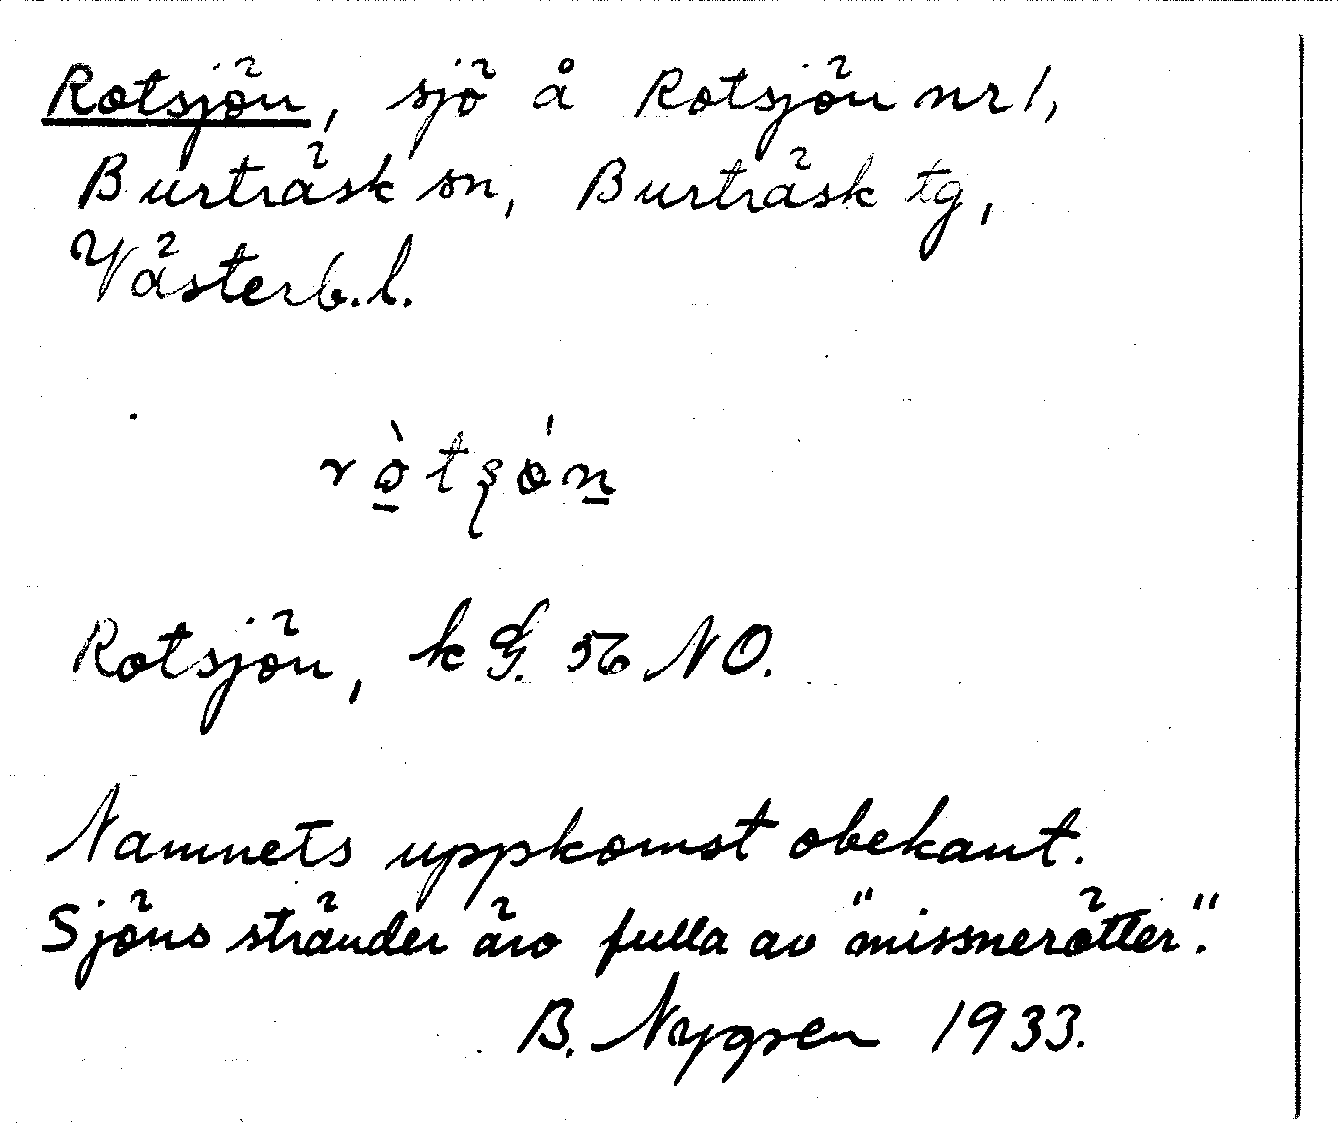 Rotsjön, sjö å Rotsjön nr 1,
Burträsk sn, Burträsk tg,
Västerb.l.
rò̲tʂǿn̲
Rotsjön, k G. 56 NO.
Namnets uppkomst obekant.
Sjöns stränder äro fulla av "missnerötter".
B. Nygren 1933.